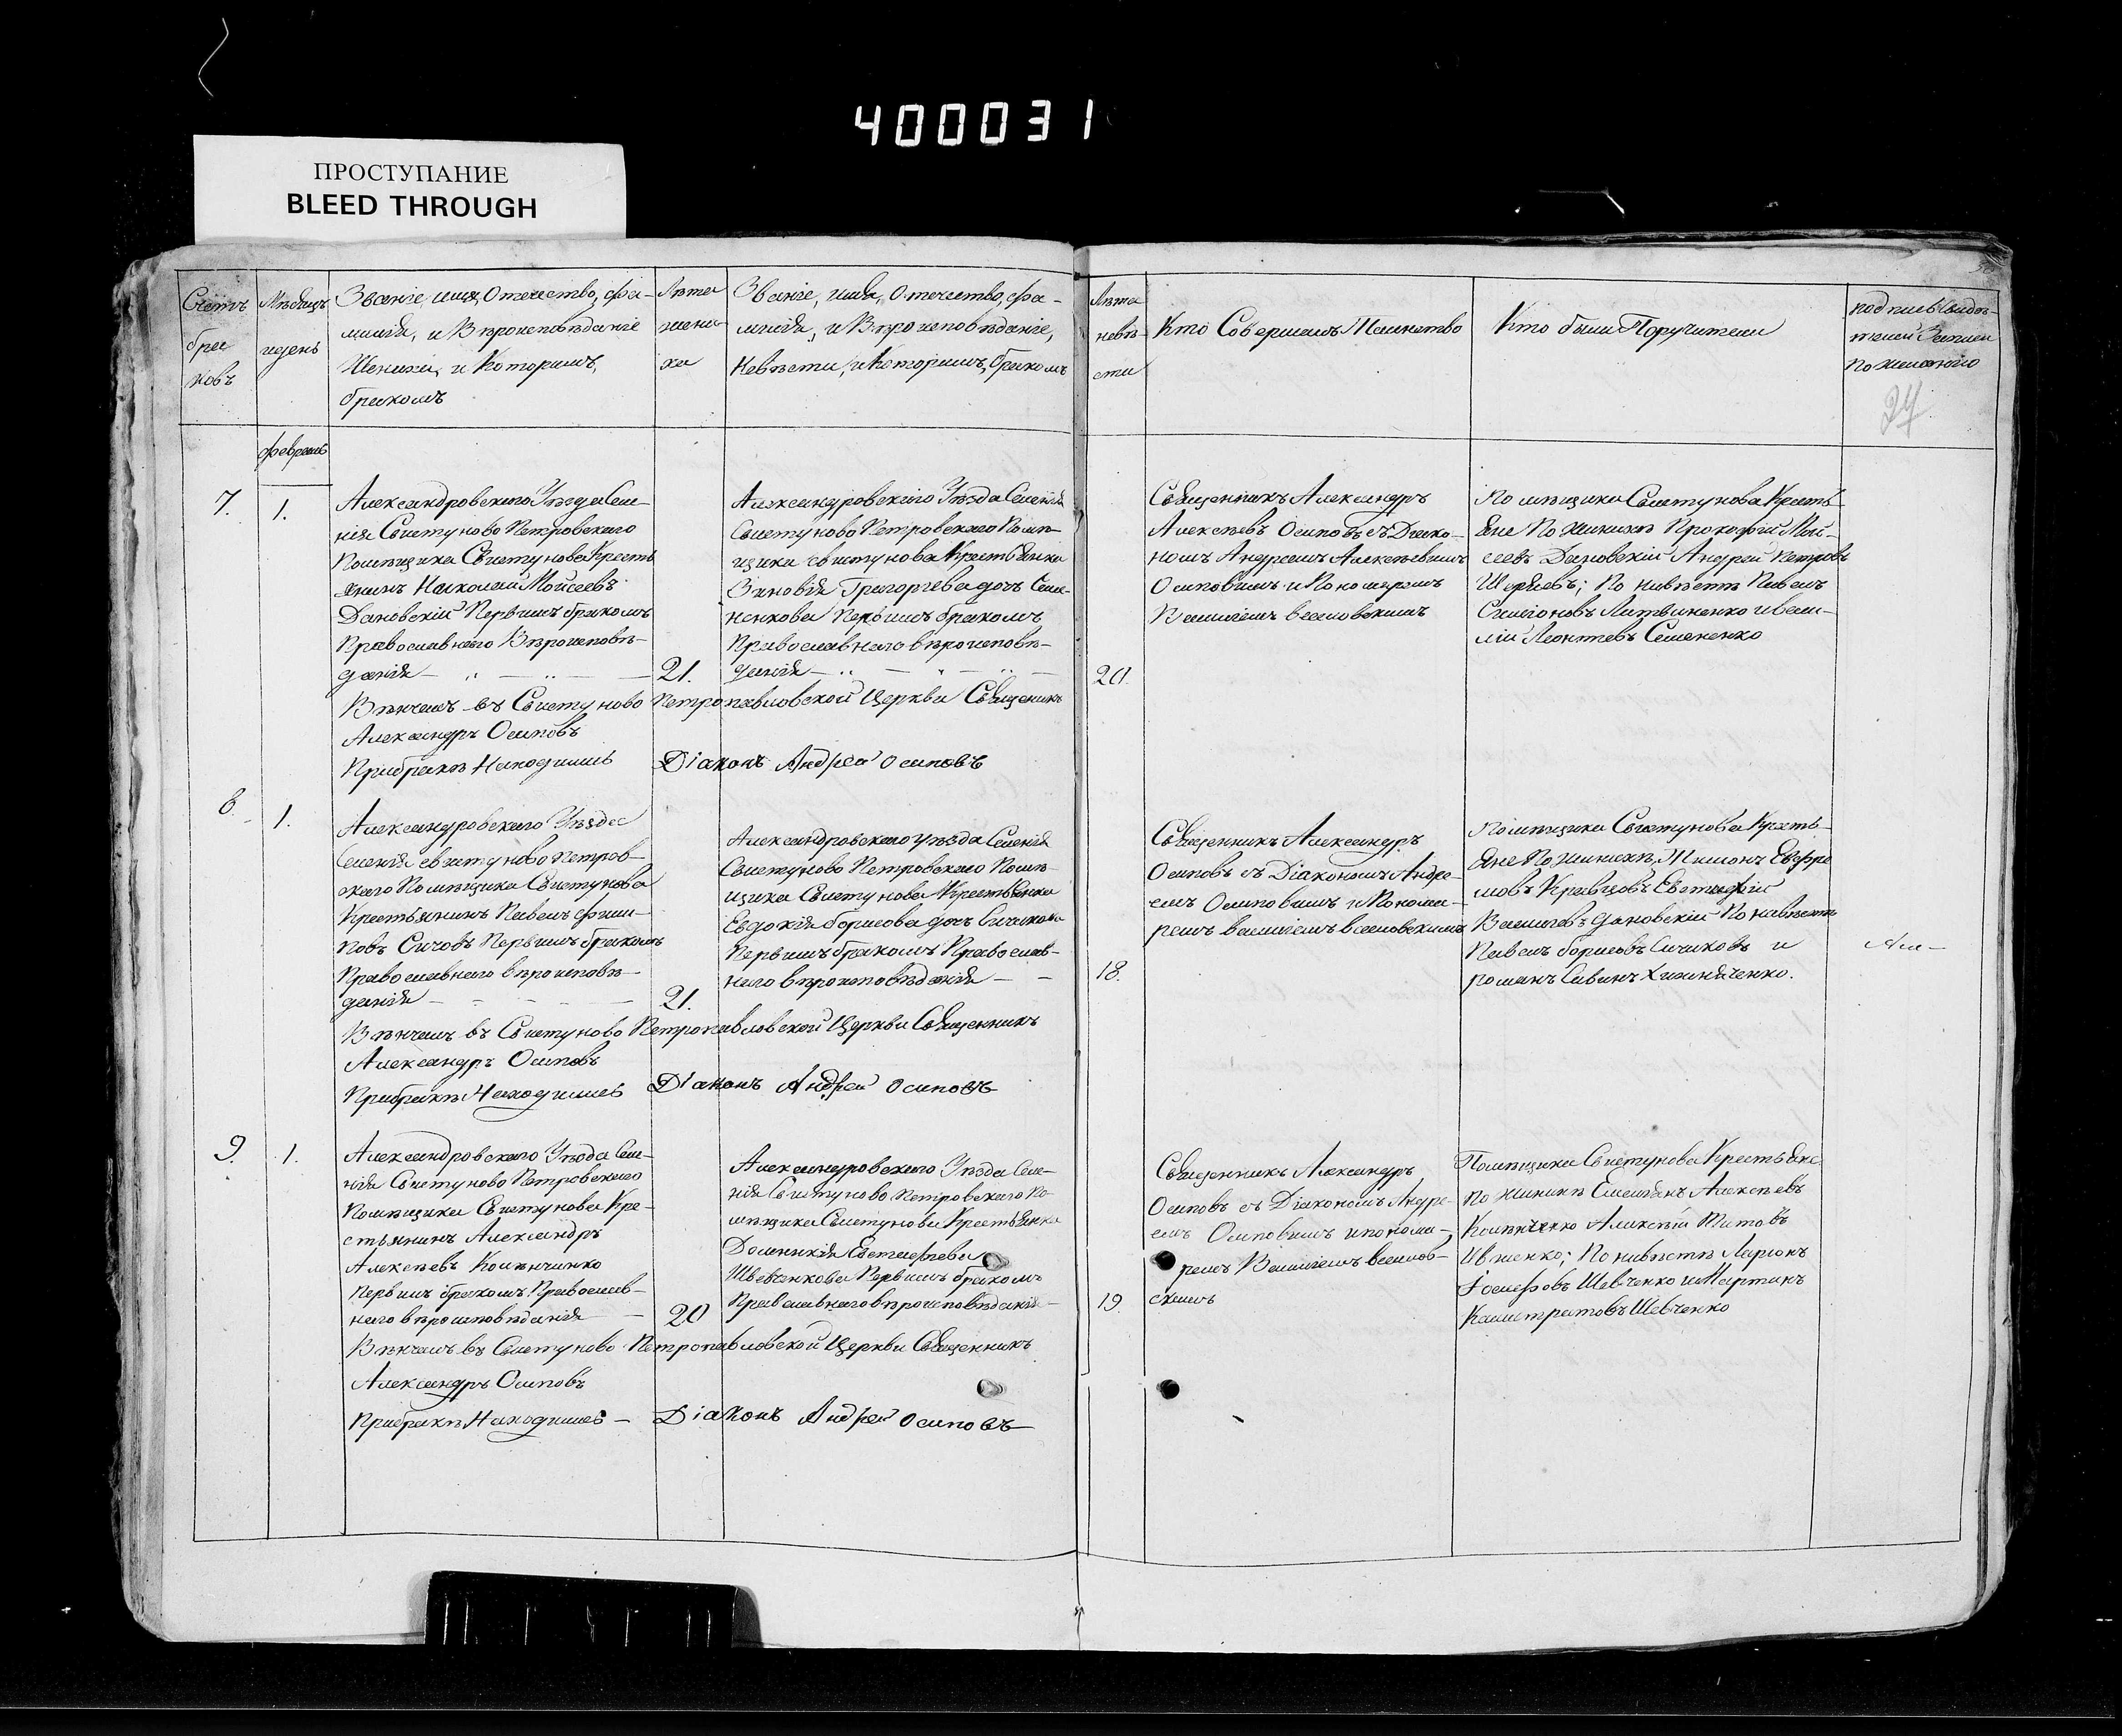 400031
ПРОСТУПАНИЕ
BLEED THROUGH
Счетъ
бра
ковъ
Мѣсяцъ
идень
Званіе, имя, Отечество, фа-
милія, и Вѣроисповѣданіе
Жениха, и Которымъ,
бракомъ
Лѣта
жени
ха
Званіе, имя, Отечество, фа-
милія, и Вѣроисповѣданіе,
Невѣсты, и Которымъ, бракомъ
Лѣта
невѣ-
сты
Кто Совершалъ Таинство
Кто были Поручители
подпись свидѣ-
телей Записи
по желанію
февраль
7.
1.
Александровскаго Уѣзда Селе-
нія Свистуново Петровскаго
Помѣщика Свистунова Кресть
янинъ Николай Мойсеевъ
Дановскій Первымъ бракомъ
Православнаго Вѣроисповѣ-
данія
21.
Александровскаго Уѣзда Селенія
Свистуново Петровскаго Помѣ-
щика Свистунова Крестьянка
Зиновія Григоріева дочь Семе-
ненкова Первымъ бракомъ
Православнаго вѣроисповѣ-
данія
20.
Священникъ Александръ
Алексѣевъ Осиповъ съ Діако-
номъ Андреемъ Алексѣевымъ
Осиповымъ и Пономаремъ
Василіемъ Веселовскимъ
Помѣщика Свистунова Кресть
яне По Женихѣ Прокофій Мой-
сеевъ Дановскій Андрей Петровъ
По невѣстѣ Павелъ
Симоновъ Литвиненко и Васи-
лій Леонтевъ Семененко
Вѣнчалъ въ Свистуново Петропавловской Церкви Священникъ
Александръ Осиповъ
Прибракѣ Находились Діаконъ Андрей Осиповъ
8.
1.
Александровскаго Уѣзда
Селенія Свистуново Петров-
скаго Помѣщика Свистунова
Крестьянинъ Павелъ Филип-
повъ Сичовъ Первымъ бракомъ
Православнаго вѣроисповѣ-
данія
21.
Александровскаго уѣзда Селенія
Свистуново Петровскаго Помѣ-
щика Свистунова Крестьянка
Евдокія борисова дочь Сичикова
Первымъ бракомъ Православ-
наго вѣроисповѣданія
18.
Священникъ Александръ
Осиповъ съ Діакономъ Андре-
емъ Осиповымъ и Понома-
ремъ василіемъ веселовскимъ
Помѣщика Свистунова Кресть-
яне По Женихѣ, Тимонъ Евфре
мовъ Кравцовъ Евстафій
Василіевъ Дановскій По невѣстѣ
Павелъ борисовъ Сичиковъ и
романъ Савинъ Хижняченко.
Вѣнчалъ въ Свистуново Петропавловской Церкви Священникъ
Александръ Осиповъ
Прибракѣ Находились Діаконъ Андрей Осиповъ
9.
1.
Александровскаго Уѣзда Селе-
нія Свистуново Петровскаго
Помѣщика Свистунова Кре-
стьянинъ Александръ
Алексѣевъ
Первымъ бракомъ Православ-
наго вѣроисповѣданія
20
Александровскаго Уѣзда Селе-
нія Свистуново Петровскаго По-
мѣщика Свистунова Крестьянка
Доминикія Евстафіева
Шевченкова Первымъ бракомъ
Православнаго вѣроисповѣданія
19.
Священникъ Александръ
Осиповъ съ Діакономъ Андре-
емъ Осиповымъ и понома-
ремъ Василіемъ веселов-
скимъ
Помѣщика Свистунова Крестьяне
По Женихѣ Емельянъ Алексѣевъ
Алексѣй Титовъ
Ивченко; По невѣстѣ Ларіонъ
Іосифовъ Шевченко и Мартинъ
Калистратовъ Шевченко
Вѣнчалъ въ Свистуново Петропавловской Церкви Священникъ
Александръ Осиповъ
Прибракѣ Находились – Діаконъ Андрей Осиповъ